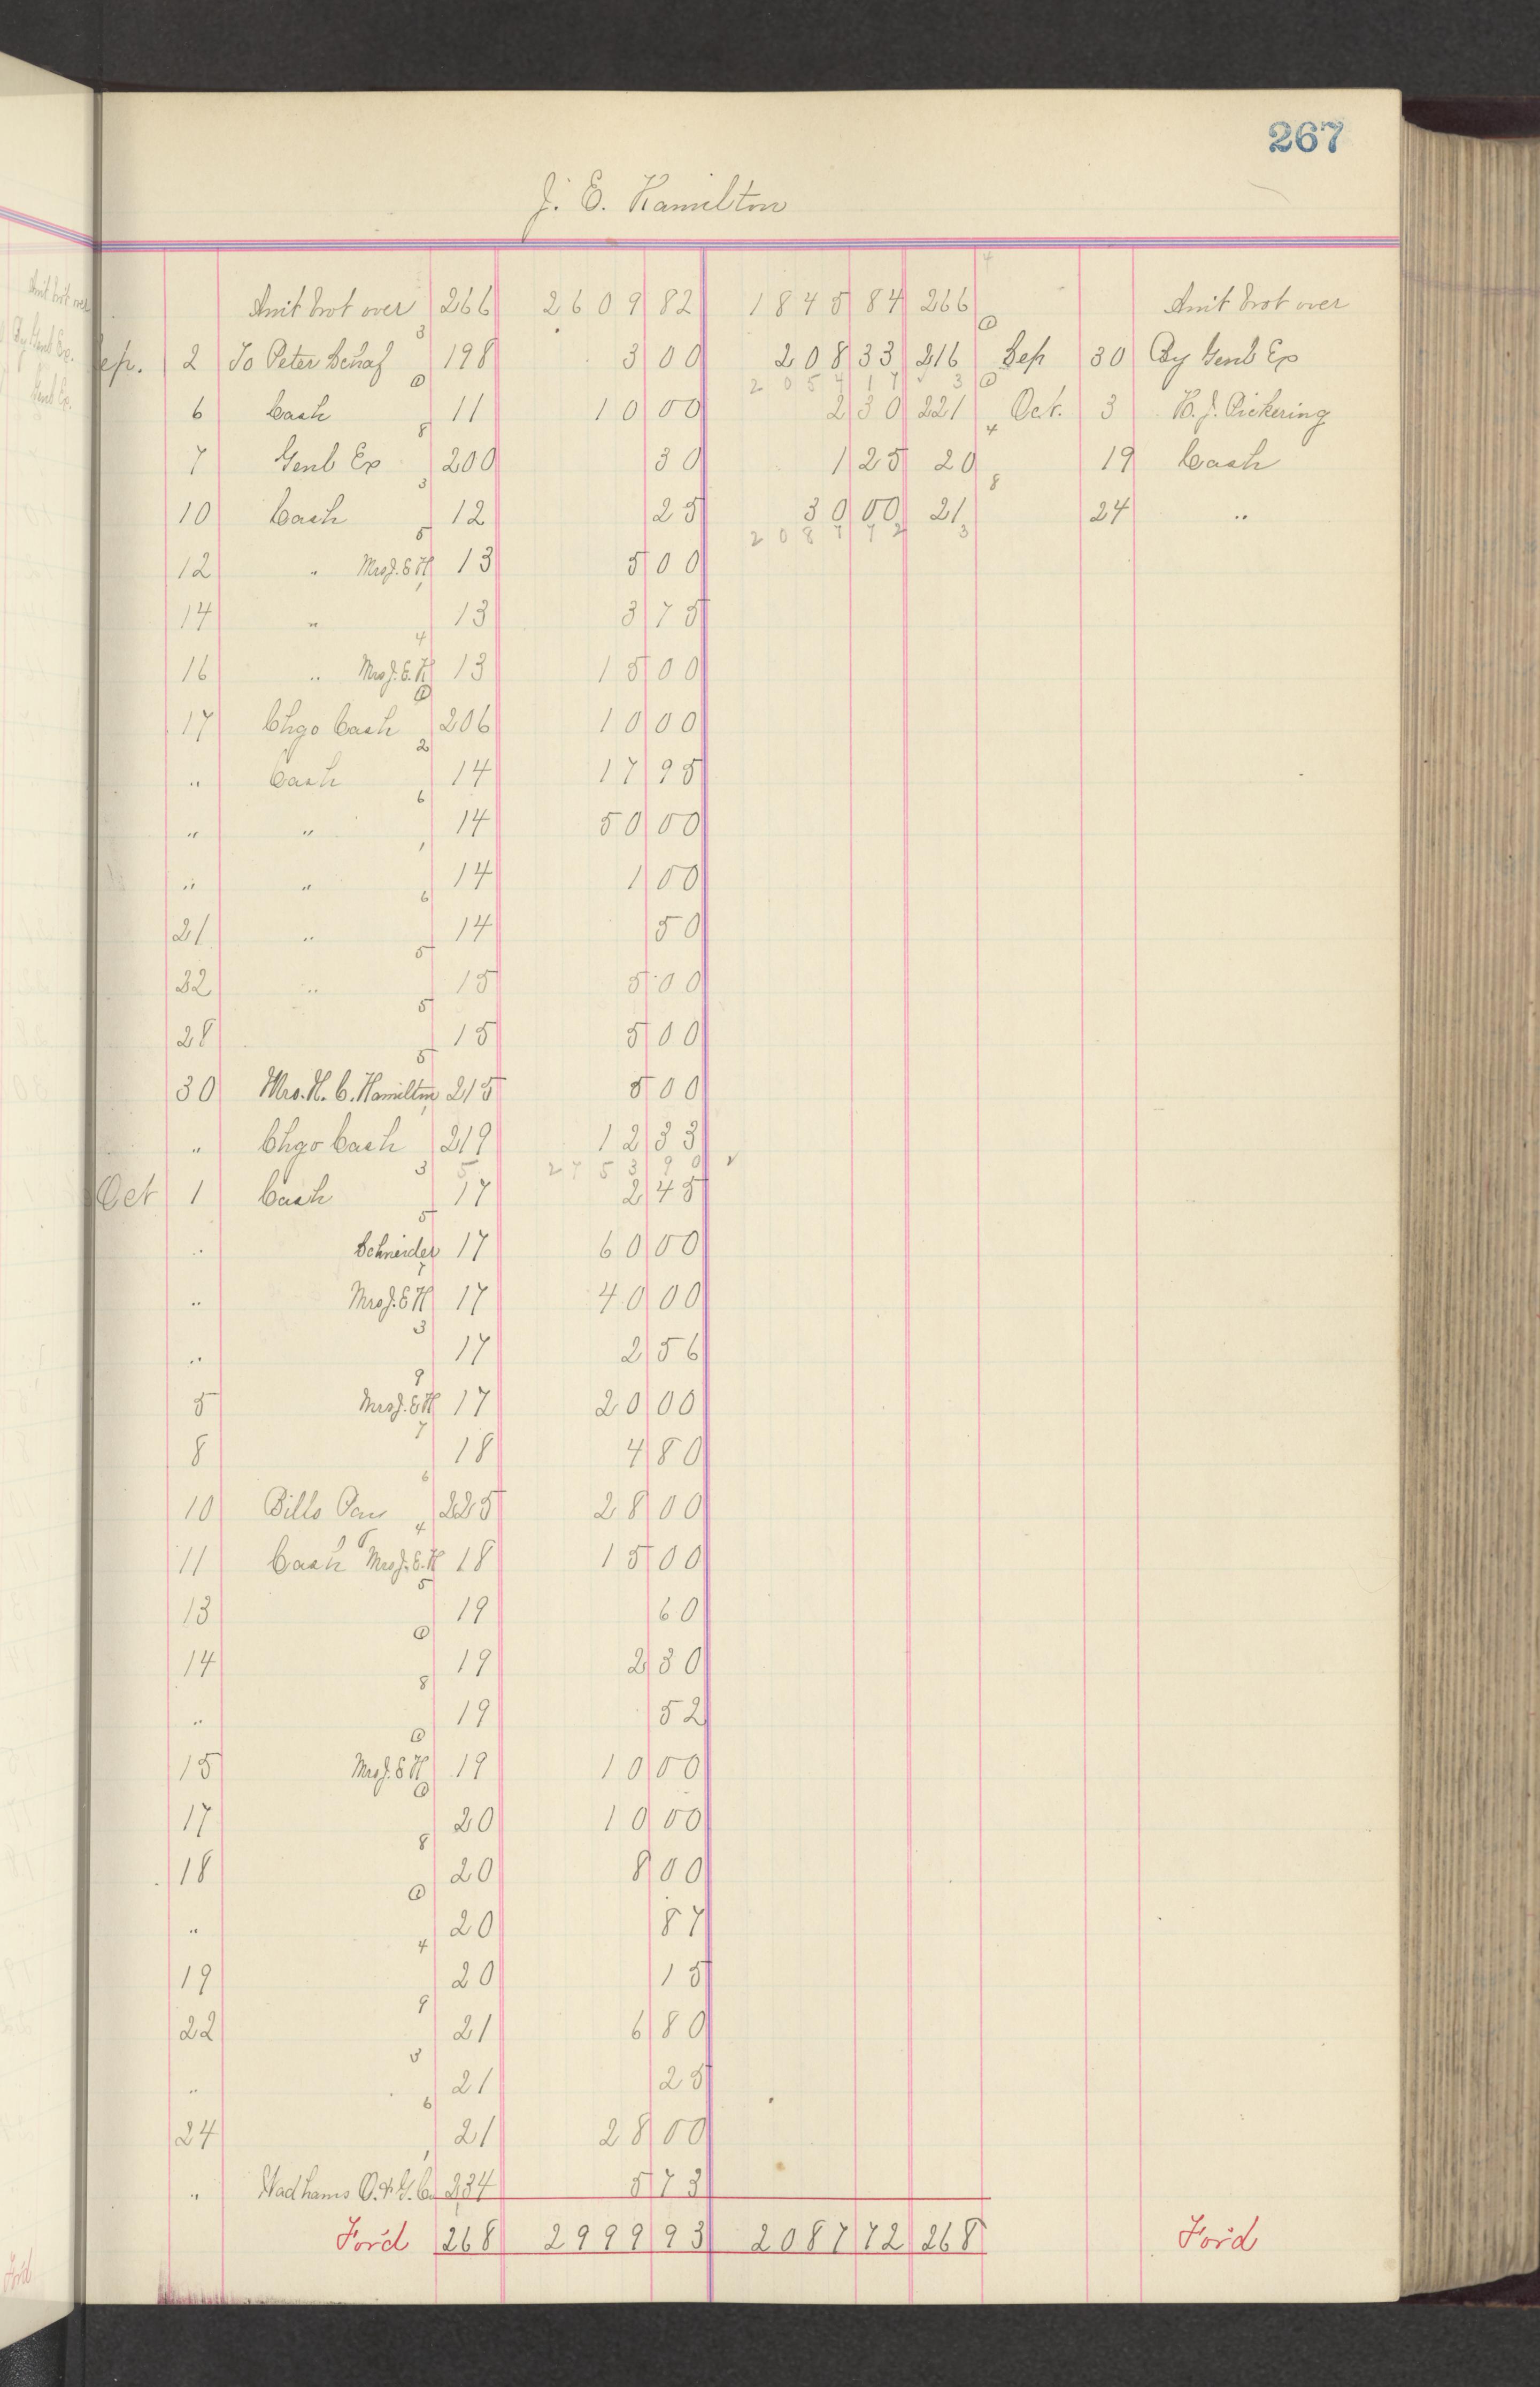 267
J. E. Hamilton
Amt brot over 266 2609 82 1845 84 266 Amt brot over
Sep. 2 To Peter Schaf 198 3 00 208 33 216 Sep 30 By Genl Ex
2054 17
6 Cash 11 10 00 2 30 221 Oct. 3 H. J. Pickering
7 Genl Ex 200 30 1 25 20 19 Cash
10 Cash 12 25 30 00 21 24 "
2087 72
12 " Mrs J. E H 13 5 00
14 " 13 3 75
16 " Mrs J. E. H 13 15 00
17 Chgo Cash 206 10 00
" Cash 14 17 95
" " 14 50 00
" " 14 1 00
21 " 14 50
22 " 15 5 00
28 15 5 00
30 Mrs. H. C. Hamilton 215 5 00
" Chgo Cash 219 12 33
2753 90
Oct 1 Cash 17 2 45
" Schneider 17 60 00
" Mrs J. E H 17 40 00
" 17 2 56
5 Mrs J. E H 17 20 00
8 18 4 80
10 Bills Pay 225 28 00
11 Cash Mrs J. E. H 18 15 00
13 19 60
14 19 2 30
" 19 52
15 Mrs J. E H 19 10 00
17 20 10 00
18 20 8 00
" 20 87
19 20 15
22 21 6 80
" 21 25
24 21 28 00
" Wadhams O. & G. Co 234 5 73
For'd 268 2999 93 2087 72 268 For'd